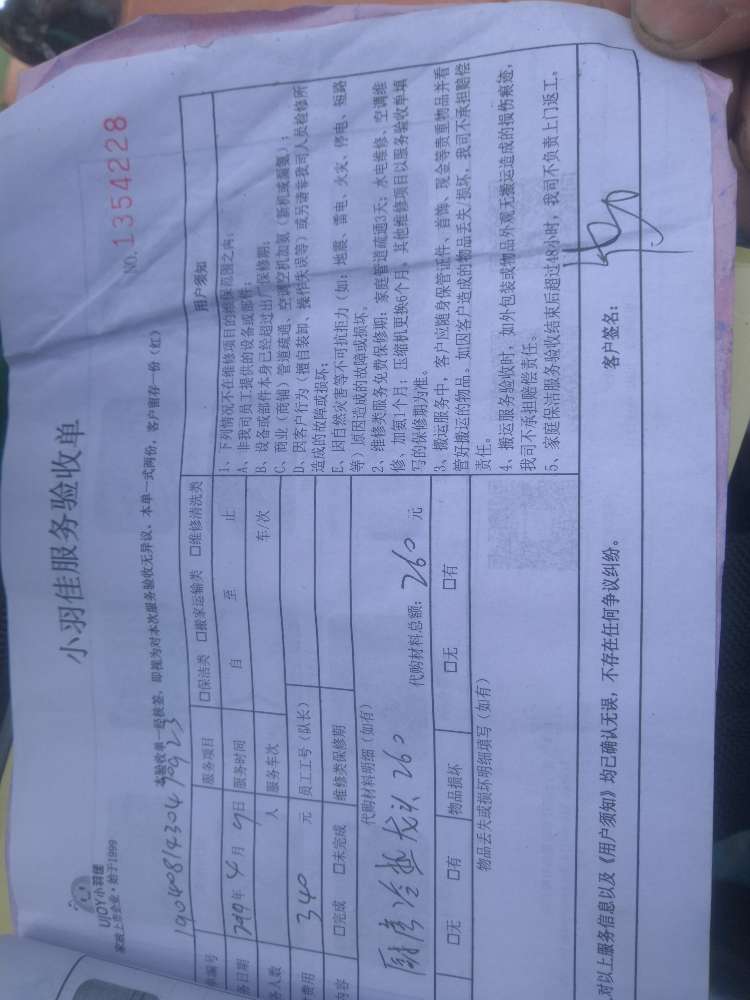 UJOY小羽佳
家政上市企业·始于1999
小羽佳服务验收单
NO. 1354228
本验收单一经核签，即视为对本次服务验收无异议、本单一式两份，客户留存一份（红）
单编号
服务项目 □保洁类 □搬家运输类 □维修清洗类
务日期 年 4 月 9 日 服务时间 自 至 止
务人数 人 服务车次 车/次
费用 340 元 员工工号（队长）
内容 □完成 □未完成 维修类保修期
代购材料明细（如有）
厨房冷热龙头260
代购材料总额：260 元
□无 □有 物品损坏 □无 □有
物品丢失或损坏明细填写（如有）
用户须知
1、下列情况不在维修项目的维保范围之内：
A、非我司员工提供的设备或部件；
B、设备或部件本身已经超过出厂保修期；
C、商业（商铺）管道疏通、空调空机加氨（新机或漏氨）；
D、因客户行为（擅自装卸、操作失误等）或另请非我司人员检修所
造成的故障或损坏；
E、因自然灾害等不可抗拒力（如：地震、雷电、火灾、停电、短路
等）原因造成的故障或损坏。
2、维修类服务免费保修期：家庭管道疏通3天；水电维修、空调维
修、加氨1个月；压缩机更换6个月。其他维修项目以服务验收单填
写的保修期为准。
3、搬运服务中，客户应随身保管证件、首饰、现金等贵重物品并看
管好搬运的物品。如因客户造成的物品丢失/损坏，我司不承担赔偿
责任。
4、搬运服务验收时，如外包装或物品外观无搬运造成的损伤痕迹，
我司不承担赔偿责任。
5、家庭保洁服务验收结束后超过48小时，我司不负责上门返工。
对以上服务信息以及《用户须知》均已确认无误，不存在任何争议纠纷。
客户签名：